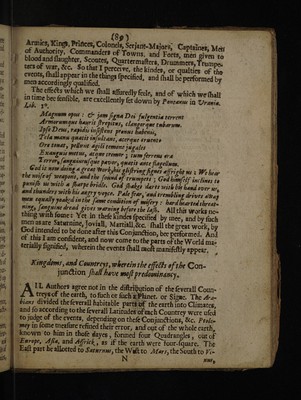 (89)
Armies, Kings, Princes, Colonels, Serjant-Majors, Captaines, Men
of Authority, Commanders of Towns, and Forts, men given to
blood and slaughter, Scoutes, Quartermasters, Drummers, Trumpe-
ters of war, &c. So that I perceive, the kindes, or qualties of the
events, shall appear in the things specified, and shall be performed by
men accordingly qualified.
The effects which we shall assuredly feele, and of which we shall
in time bee sensible, are excellently set down by Pontanus in Urania.
Lib. 1º.
Magnum opus: & jam signa Dei fulgentia terrent
Armorumque hauris strepitus, clangorque tubarum.
Ipse Deus, rapidis insistens pronus habenis,
Tela manu quatit insultans, acerque cruento
Ore tonat, pallor agit temone jugales
Exangues metus, atque tremor; tum ferreus ora
Terror, sanguineusque pavor, quatit ante flagellum.
God is now doing a great Work, his glistring signes affright us: We hear
the noise of weapons, and the sound of trumpets: God himself inclines to
punish us with a sharpe bridle. God shakes darts with his hand over us,
and thunders with his angry voyce. Pale fear, and trembling drives along
men equally yoaked in the same condition of misery: hard hearted threat-
ning, sanguine dread gives warning before the lash. All this works no-
thing with some: Yet in these kindes specified by mee, and by such
men in are Saturnine, Joviall, Martiall, &c. shall the great work, by
God intended to be done after this Conjunction, bee performed. And
of this I am confident, and now come to the parts of the World ma-
terially signified, wherein the events shall most manifestly appear.
Kingdoms, and Countreys, wherein the effects of the Con-
junction shall have most predominancy.
ALL Authors agree not in the distribution of the severall Coun-
treys of the earth, to such or such a Planet, or Signe. The Ara-
bians divided the severall habitable parts of the earth into Climates,
and so according to the severall Latitudes of each Countrey were used
to judge of the events, depending on these Conjunctions, &c. Ptolo-
mey in some measure refined their error, and out of the whole earth,
known to him in those dayes, formed four Quadrangles, out of
Europe, Asia, and Affrick, as if the earth were four-square. The
East part he allotted to Saturnus, the West to Mars, the South to Ve-
N
nus,